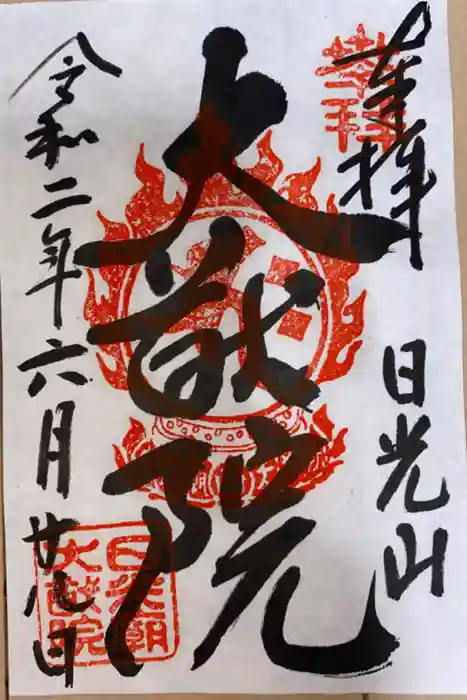 奉拝
日光山
大猷院
令和二年六月廿九日
日光廟
大猷院